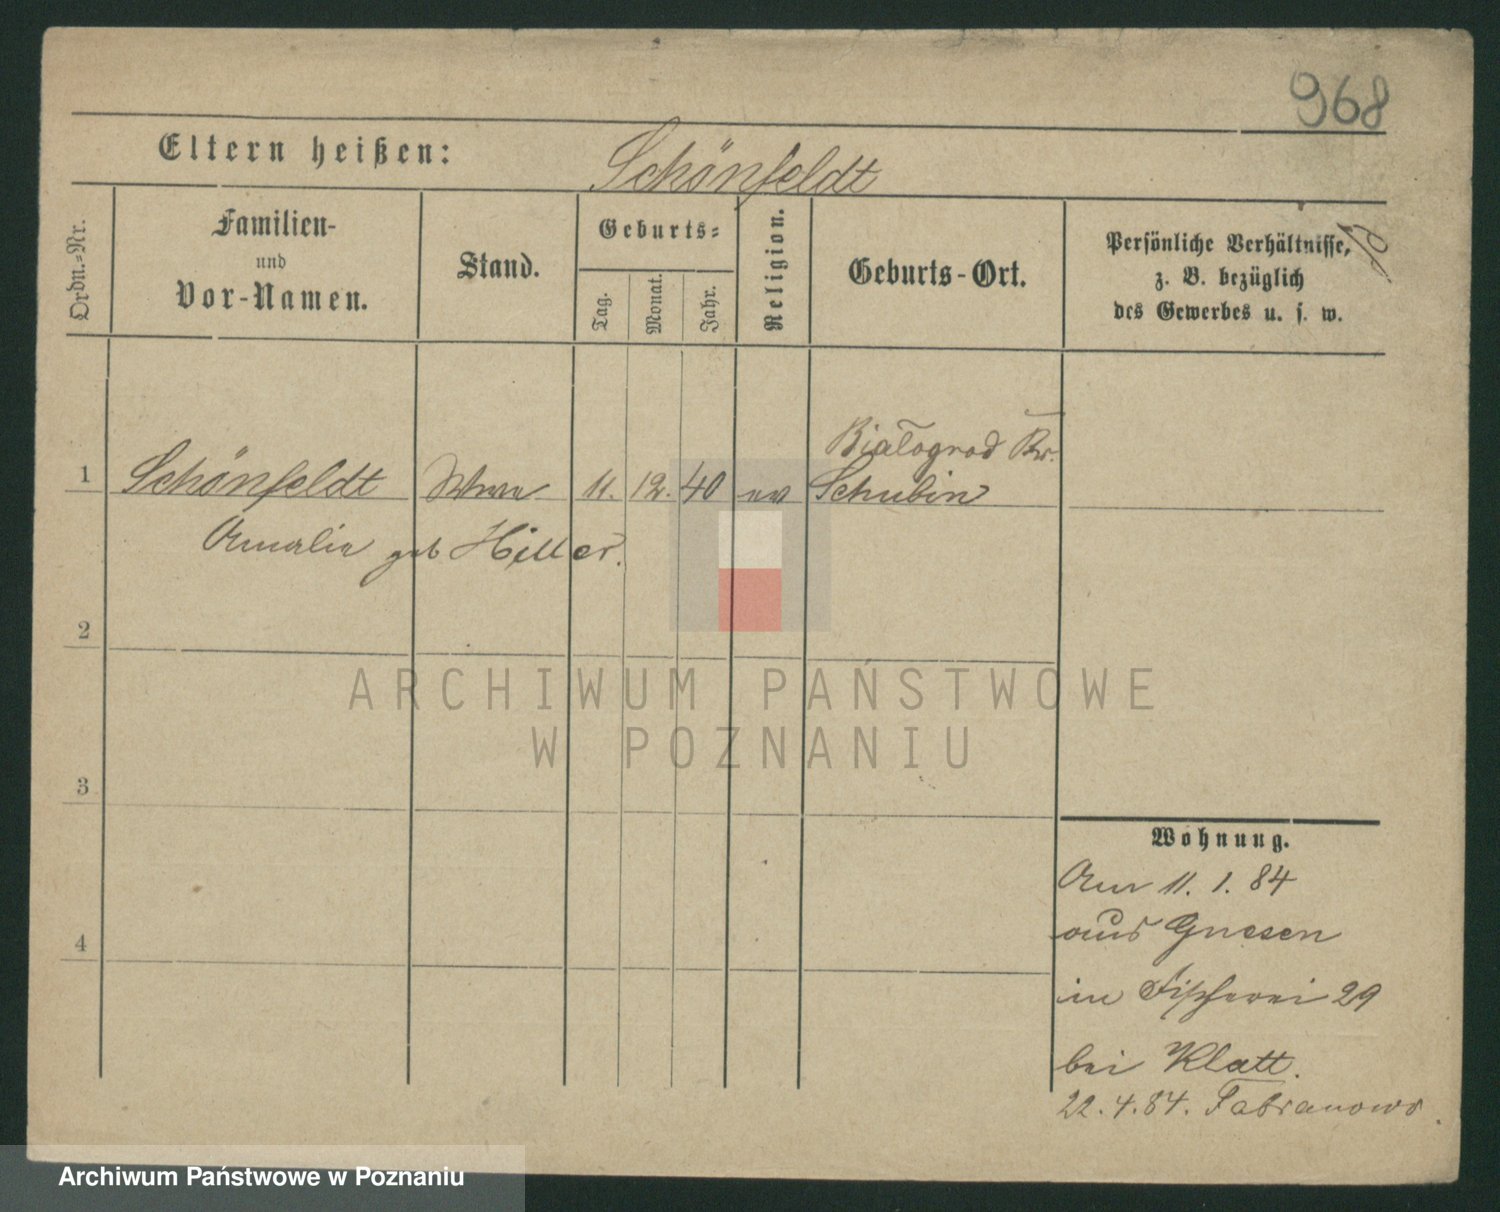 968
Eltern heißen: Schönfeldt
Ordn.-Nr.
Familien-
und
Vor-Namen.
Stand.
Geburts-
Tag.
Monat.
Jahr.
Religion.
Geburts-Ort.
Persönliche Verhältnisse,
z. B. bezüglich
des Gewerbes u. s. w.
Bialogrod Kr.
1 Schönfeldt Wwe 11. 12. 40 ev Schubin
Amalie geb Hiller.
2
3
4
ARCHIWUM PAŃSTWOWE
W POZNANIU
Wohnung.
Am 11. 1. 84
aus Gnesen
in Fischerei 29
bei Klatt.
22. 4. 84.
Archiwum Państwowe w Poznaniu